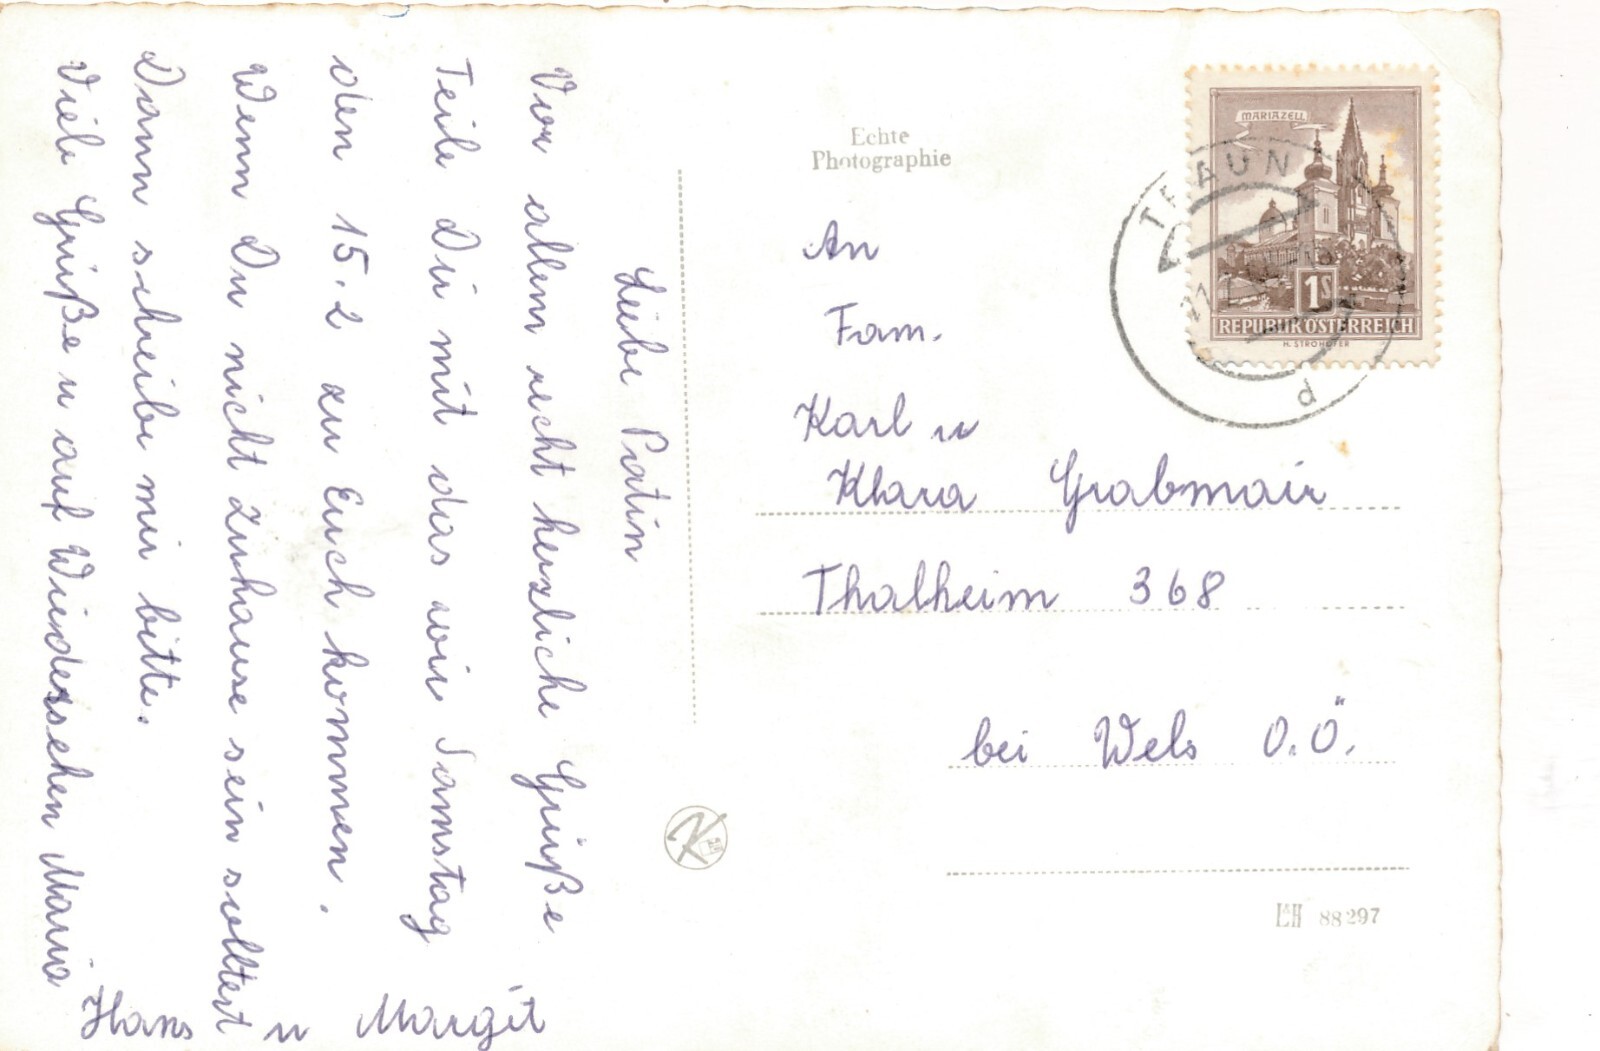 Liebe Patin
Vor allem recht herzliche Grüße
Teile Dir mit das wir Samstag
den 15.2 zu Euch kommen.
Wenn Du nicht zuhause sein solltest
Dann schreibe mir bitte.
Viele Grüße u auf Wiedersehen Maria
Hans u Margit
Echte
Photographie
An
Fam.
Karl u
Klara Grabmair
Thalheim 368
bei Wels O.Ö.
MARIAZELL
1S
REPUBLIK ÖSTERREICH
H. STROHOFER
TRAUN
d
K
88297